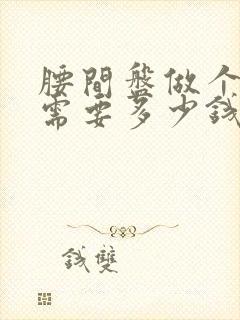 腰間盤做个
需要多少錢
錢雙